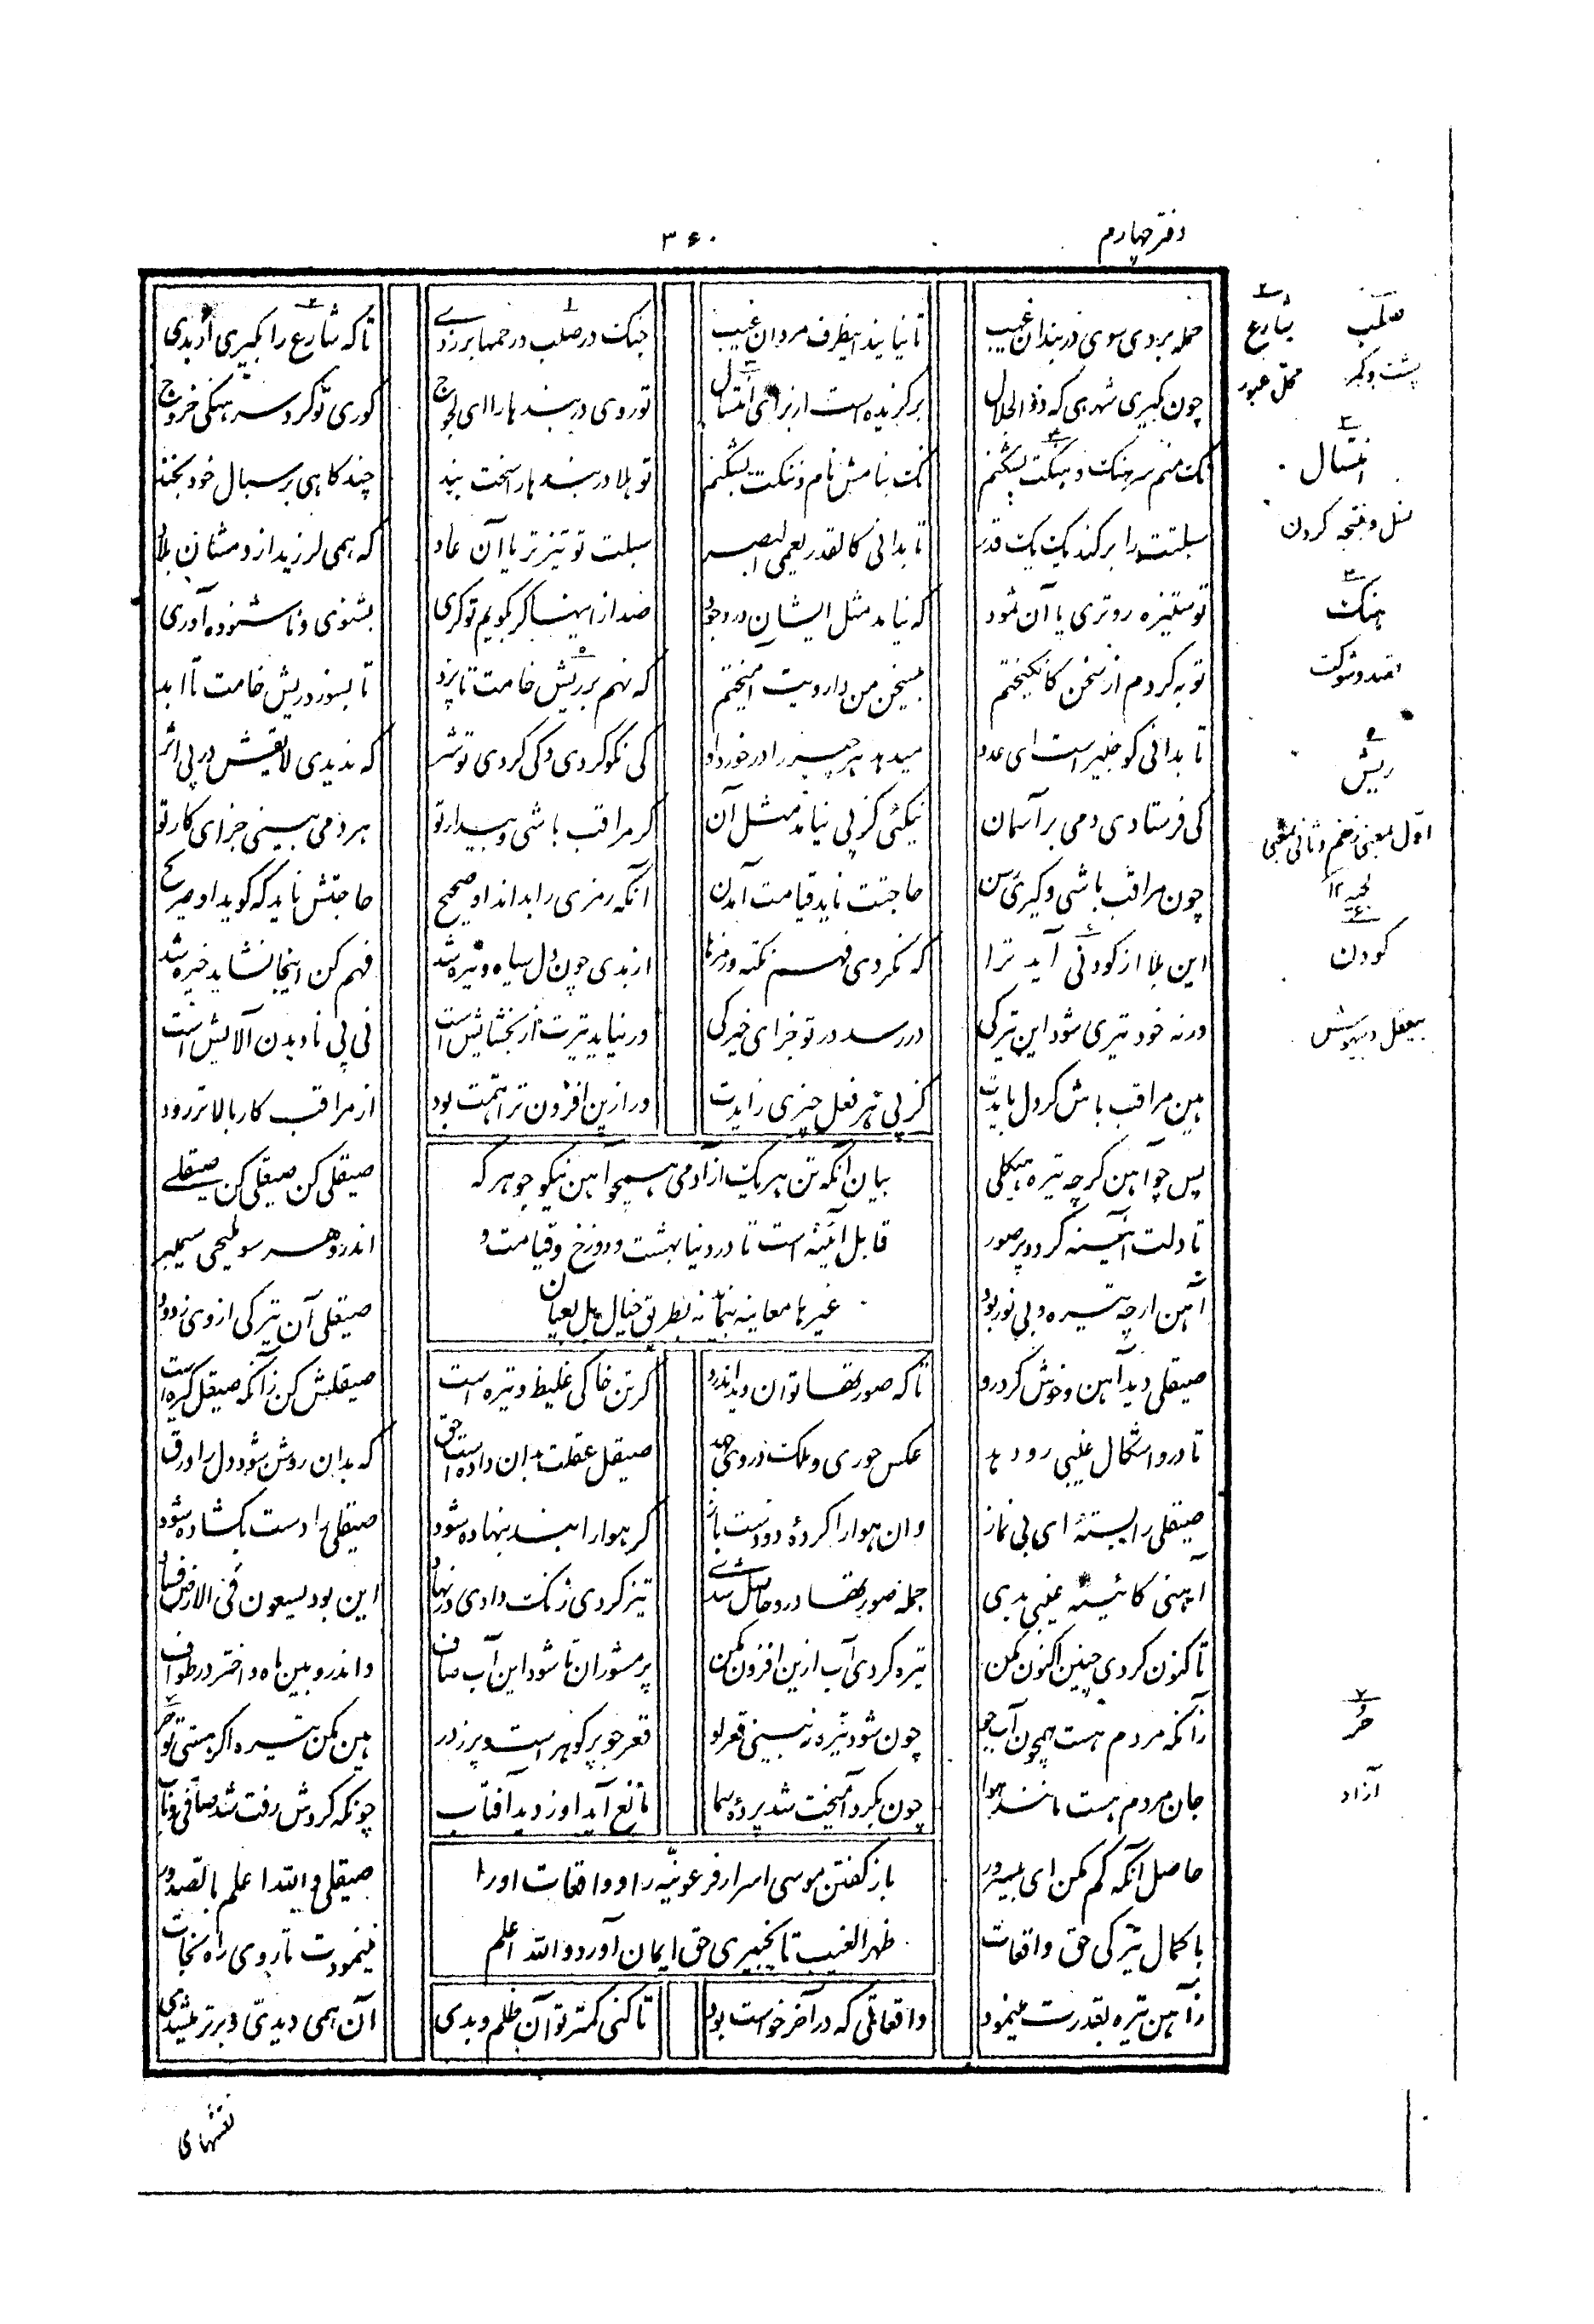 دفتر چهارم
۳۶۰
حمله بردی سوی دربندان غیب تا نیایند اینطرف مردان غیب جنک در صلب و رحمها بر زدی تا که شارع را بگیری از بدی
چون بگیری شهرهی که ذوالجلال برگزیده است از برای انتسال تو روی دربندها را ای لجوج کوری تو کرد سرهنکی خروج
نک منم سرهنک و هنکت بشکنم نک بنامش نام و ننکت بشکنم تو هلا دربندها را سخت بند چند کاهی بر سبال خود بخند
سبلتت را بر کند یک یک قدر تا بدانی کالقدر یعمی البصر سبلت تو تیزتر یا آن عاد که همی لرزید از دمشان بلاد
تو ستیزه روتری یا آن ثمود که نیامد مثل ایشان در وجود صد ازاینها کر بکویم تو کری بشنوی و ناشنوده آوری
توبه کردم از سخن کانکیختم بی سخن من دارویت آمیختم که نهم بر ریش خامت تا پزد تا بسوزد ریش خامت تا ابد
تا بدانی کو خبیر است ای عدو میدهد هر چیز را در خورد او کی نکو کردی و کی کردی تو شر که ندیدی لایقش در پی اثر
کی فرستادی دمی بر آسمان نیکئی کز پی نیامد مثل آن کر مراقب باشی و بیدار تو هر دمی بینی جزای کار تو
چون مراقب باشی و کیری رسن حاجتت ناید قیامت آمدن آنکه رمزی را بداند او صحیح حاجتش ناید که کوید او صریح
این بلا از کودنی آید ترا که نکردی فهم نکته و رمزها از بدی چون دل سیاه و تیره شد فهم کن اینجا نشاید خیره شد
ورنه خود تیری شود این تیرکی در رسد در تو جزای خیرکی ور نیاید تیرت از بخشایش است نی پی نادیدن آلایش است
هین مراقب باش کر دل بایدت کز پی هر فعل چیزی زایدت ور ازین افزون ترا همت بود از مراقب کار بالاتر رود
بیان آنکه تن هر یک از آدمی همچو آهن نیکو جوهر که
قابل آئینه است تا در دنیا بهشت و دوزخ و قیامت و
غیرها معاینه بنماید نه بطریق خیال بل بعیان
پس چو آهن کرچه تیره هیکلی صیقلی کن صیقلی کن صیقلی
تا دلت آئینه کردد پر صور اندر و هر سو ملیحی سیمبر
آهن ارچه تیره و بی نور بود صیقلی آن تیرکی از وی زدود
صیقلی دید آهن و خوش کرد رو تا که صورتها توان دید اندرو کر تن خاکی غلیظ و تیره است صیقلش کن زآنکه صیقل کیره است
تا درو اشکال غیبی رو دهد عکس حوری و ملک در وی جهد صیقل عقلت بدان داده است حق که بدان روشن شود دل را ورق
صیقلی را بستهٔ ای بی نماز وان هوا را کردهٔ دو دست باز کر هوا را بند بنهاده شود صیقلی را دست بکشاده شود
آهنی کائینه غیبی بدی جمله صورتها درو حاصل شدی تیره کردی زنک دادی در نهاد این بود یسعون فی الارض فساد
تا کنون کردی چنین اکنون مکن تیره کردی آب ازین افزون مکن بر مشوران تا شود این آب صاف واندرو بین ماه و اختر در طواف
زآنکه مردم هست همچون آب جو چون شود تیره نه بینی قعر او قعر جو پر کوهر است و پر ز در هین مکن تیره اکر هستی تو حر
جان مردم هست مانند هوا چون بکرد آمیخت شد پردهٔ سما مانع آید او ز دید آفتاب چونکه کردش رفت شد صافی و ناب
باز کفتن موسی اسرار فرعون را و واقعات او را
ظهر الغیب تا بخبیری حق ایمان آورد والله اعلم
حاصل آنکه کم مکن ای بی سرور صیقلی والله اعلم بالصدور
با کمال تیرکی حق واقعات مینمودت تا روی راه نجات
زآهن تیره بقدرت مینمود واقعاتی که در آخر خواست بود تا کنی کمتر تو آن ظلم و بدی آن همی دیدی و بدتر میشدی
نقشهای
صلب
پشت و کمر
شارع
محل عبور
انتسال
نسل و نتیجه کردن
هنک
قصد و شوکت
ریش
اول بمعنی زخم و ثانی بمعنی
لحیه ۱۲
کودن
بیعقل و بیهوش
حر
آزاد